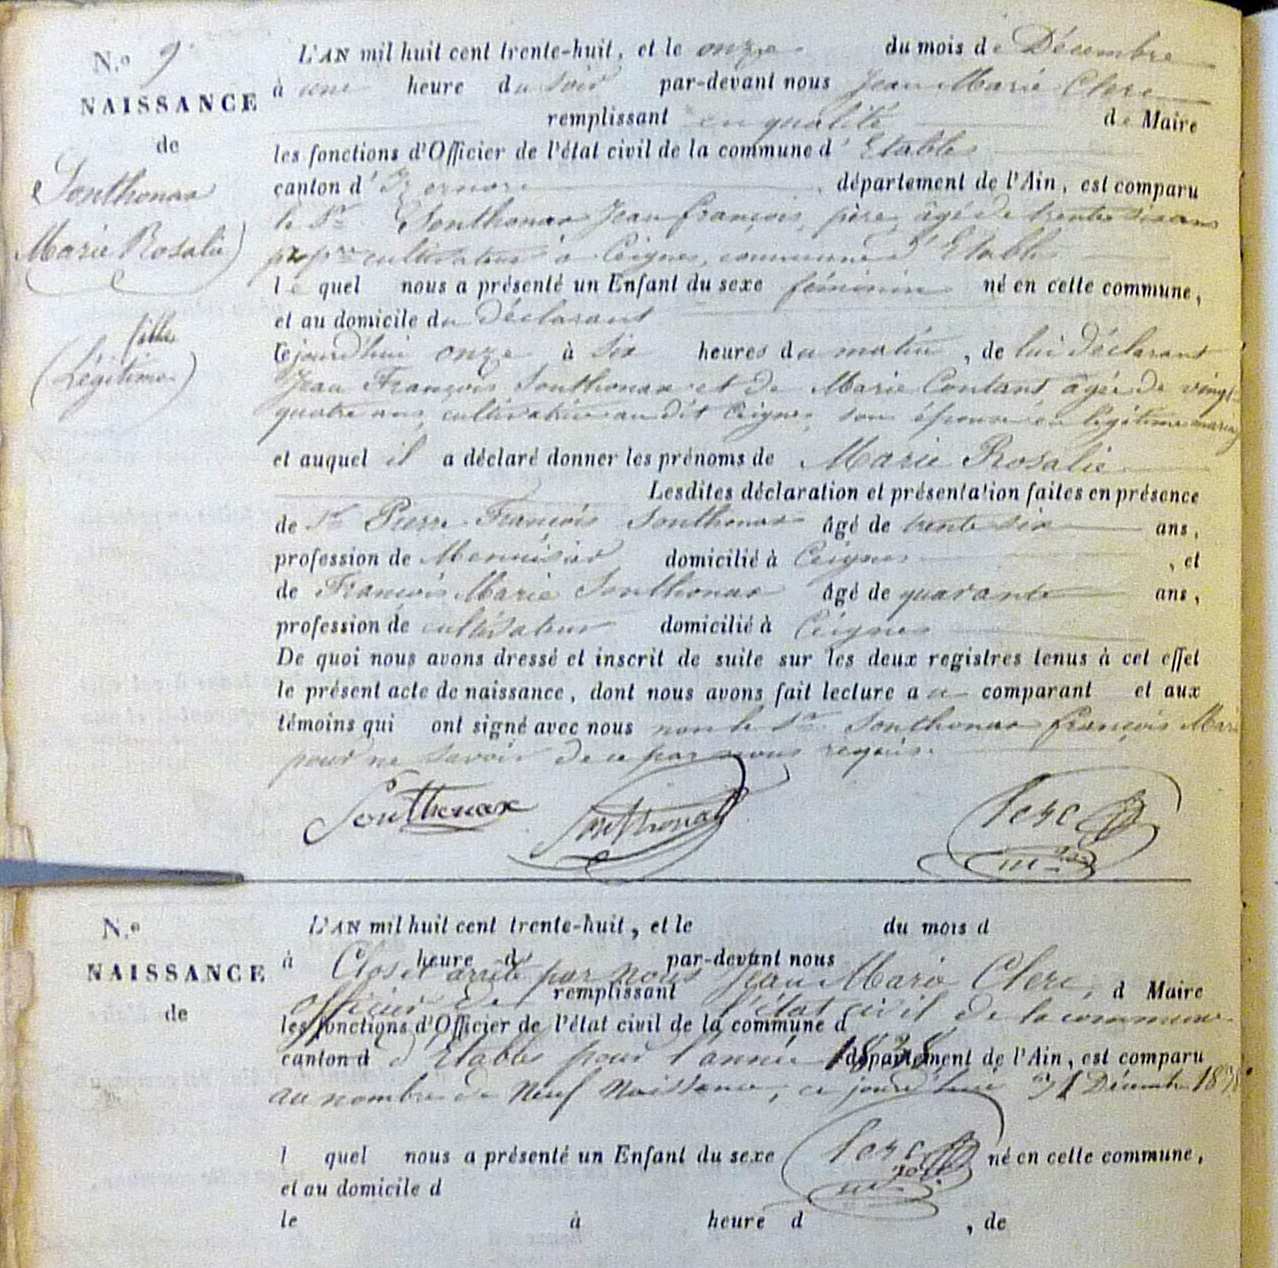 N.o 9
NAISSANCE
de
Sonthonax
Marie Rosalie
fille
(Légitime)
L'AN mil huit cent trente-huit, et le onze du mois de Décembre
à une heure du soir par-devant nous Jean Marie Clerc
remplissant en qualité de Maire
les fonctions d'Officier de l'état civil de la commune d'Etables
canton d'Izernore département de l'Ain, est comparu
le Sr Sonthonax Jean François, père, âgé de trente six ans
cultivateur à Ceignes, commune d'Etables
le quel nous a présenté un Enfant du sexe féminin né en cette commune,
et au domicile du déclarant
cejourd'hui onze à six heures du matin, de lui déclarant
Jean François Sonthonax et de Marie Contant âgée de vingt
quatre ans, cultivatrice au dit Ceignes, son épouse en légitime mariage
et auquel il a déclaré donner les prénoms de Marie Rosalie
Lesdites déclaration et présentation faites en présence
de Sr Pierre François Sonthonax âgé de trente six ans,
profession de Menuisier domicilié à Ceignes, et
de François Marie Sonthonax âgé de quarante ans,
profession de cultivateur domicilié à Ceignes
De quoi nous avons dressé et inscrit de suite sur les deux registres tenus à cet effet
le présent acte de naissance, dont nous avons fait lecture au comparant et aux
témoins qui ont signé avec nous non le Sr Sonthonax François Marie
pour ne savoir de ce par nous requis.
Sonthonax Sonthonax Clerc
mre
N.o
NAISSANCE
de
L'AN mil huit cent trente-huit, et le du mois d
à heure d par-devant nous
Clos et arrêté par nous Jean Marie Clerc,
remplissant d Maire
officier de l'état civil de la commune
les fonctions d'Officier de l'état civil de la commune d
canton d département de l'Ain, est comparu
d'Etables pour l'année 1838
au nombre de Neuf Naissances, ce jourd'hui 31 Décembre 1838
Clerc
mre
l quel nous a présenté un Enfant du sexe né en cette commune,
et au domicile d
le à heure d , de